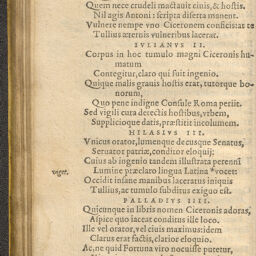 Quem nece crudeli mactauit ciuis, & hostis.
Nil agis Antoni: scripta diserta manent.
Vulnere nempe vno Ciceronem conficis: at te
Tullius æternis vulneribus lacerat.
IVLIANVS II.
Corpus in hoc tumulo magni Ciceronis hu-
matum
Contegitur, claro qui fuit ingenio.
Quique malis grauis hostis erat, tutorque bo-
norum,
Quo pene indigne Consule Roma periit.
Sed vigili cura detectis hostibus, vrbem,
Supplicioque datis, præstitit incolumem.
HILASIVS III.
Vnicus orator, lumenque decusque Senatus,
Seruator patriæ, conditor eloquij:
Cuius ab ingenio tandem illustrata perenni
viget. Lumine præclaro lingua Latina *vocet:
Occidit insane manibus laceratus iniquis
Tullius, ac tumulo subditus exiguo est.
PALLADIVS IIII.
Quicunque in libris nomen Ciceronis adoras,
Aspice quo iaceat conditus ille loco.
Ille vel orator, vel ciuis maximus: idem
Clarus erat factis, clarior eloquio.
Ac, ne quid Fortuna viro nocuisse putetur,